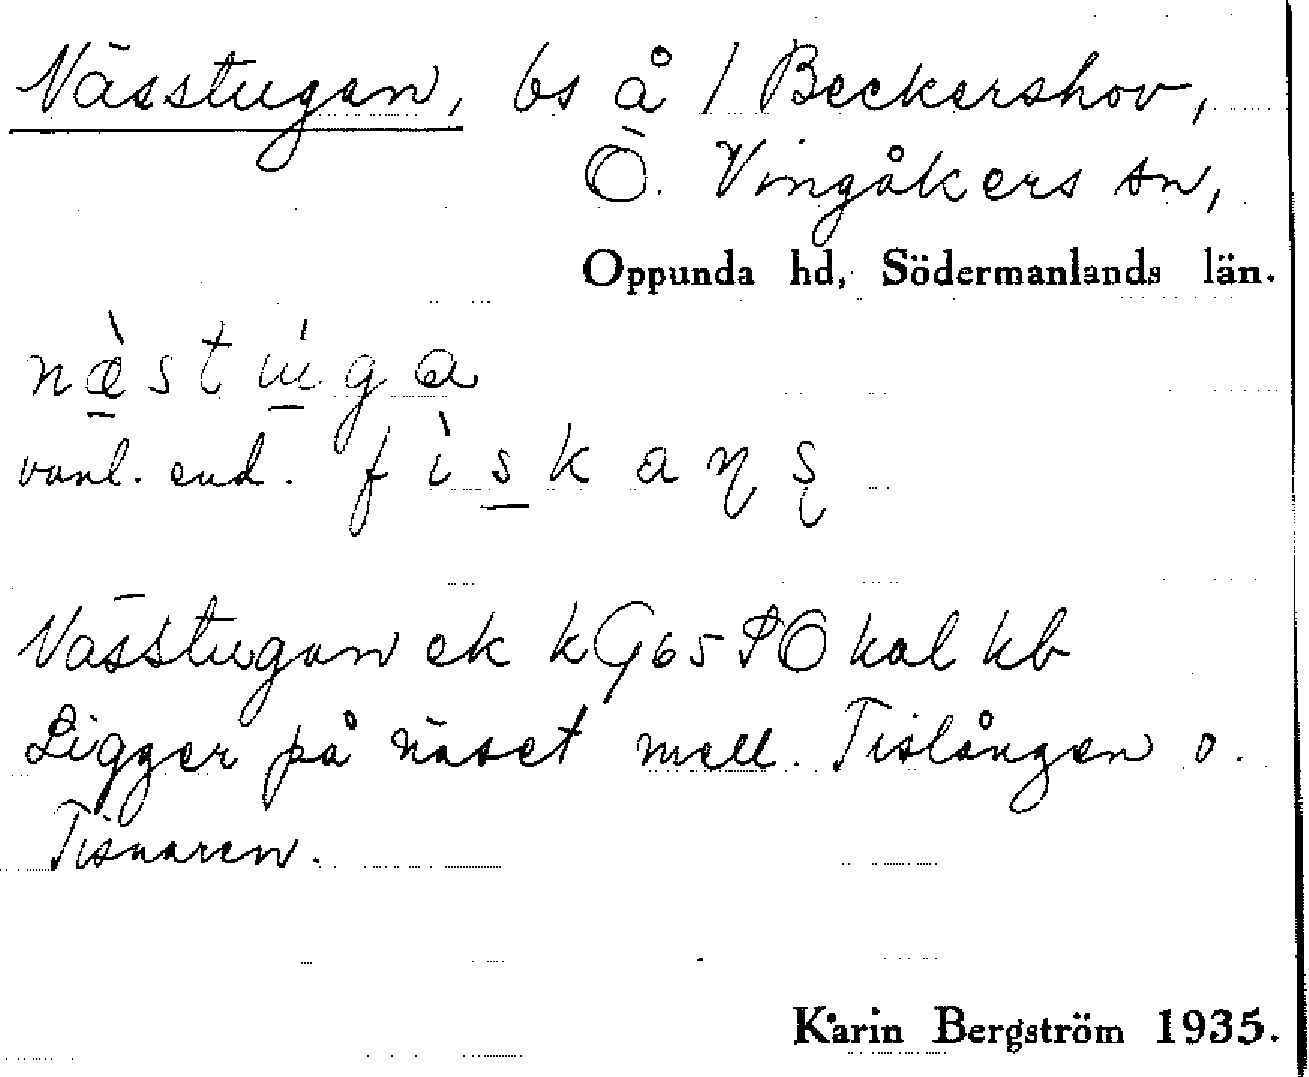 Nässtugan, bs å / Beckershov,
Ö. Vingåkers sn,
Oppunda hd, Södermanlands län.
næ̀stúga
vanl. end. fìskaɳʂ
Nässtugan ek kG65 SÖ hal kb
Ligger på näset mell. Tislången o.
Tisnaren.
Karin Bergström 1935.